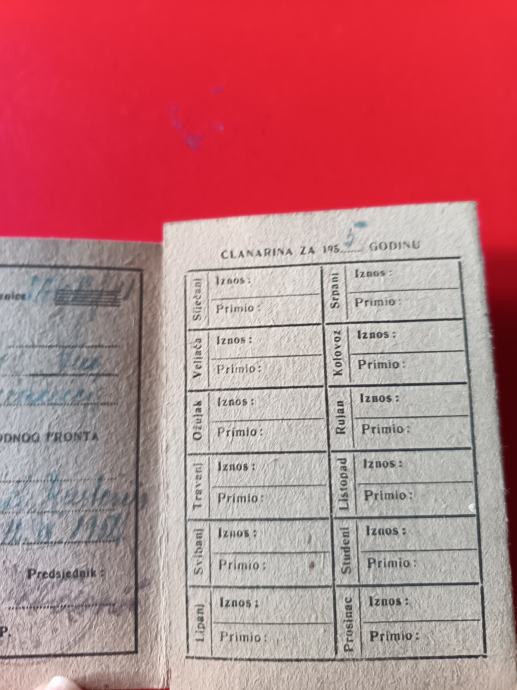 znice
ODNOG FRONTA
Predsjednik :
P.
ČLANARINA ZA 1955 GODINU
Siječanj
Iznos :
Primio:
Srpanj
Iznos :
Primio:
Veljača
Iznos :
Primio:
Kolovoz
Iznos :
Primio:
Ožujak
Iznos :
Primio:
Rujan
Iznos :
Primio:
Travanj
Iznos :
Primio:
Listopad
Iznos :
Primio:
Svibanj
Iznos :
Primio:
Studeni
Iznos :
Primio:
Lipanj
Iznos :
Primio:
Prosinac
Iznos :
Primio: